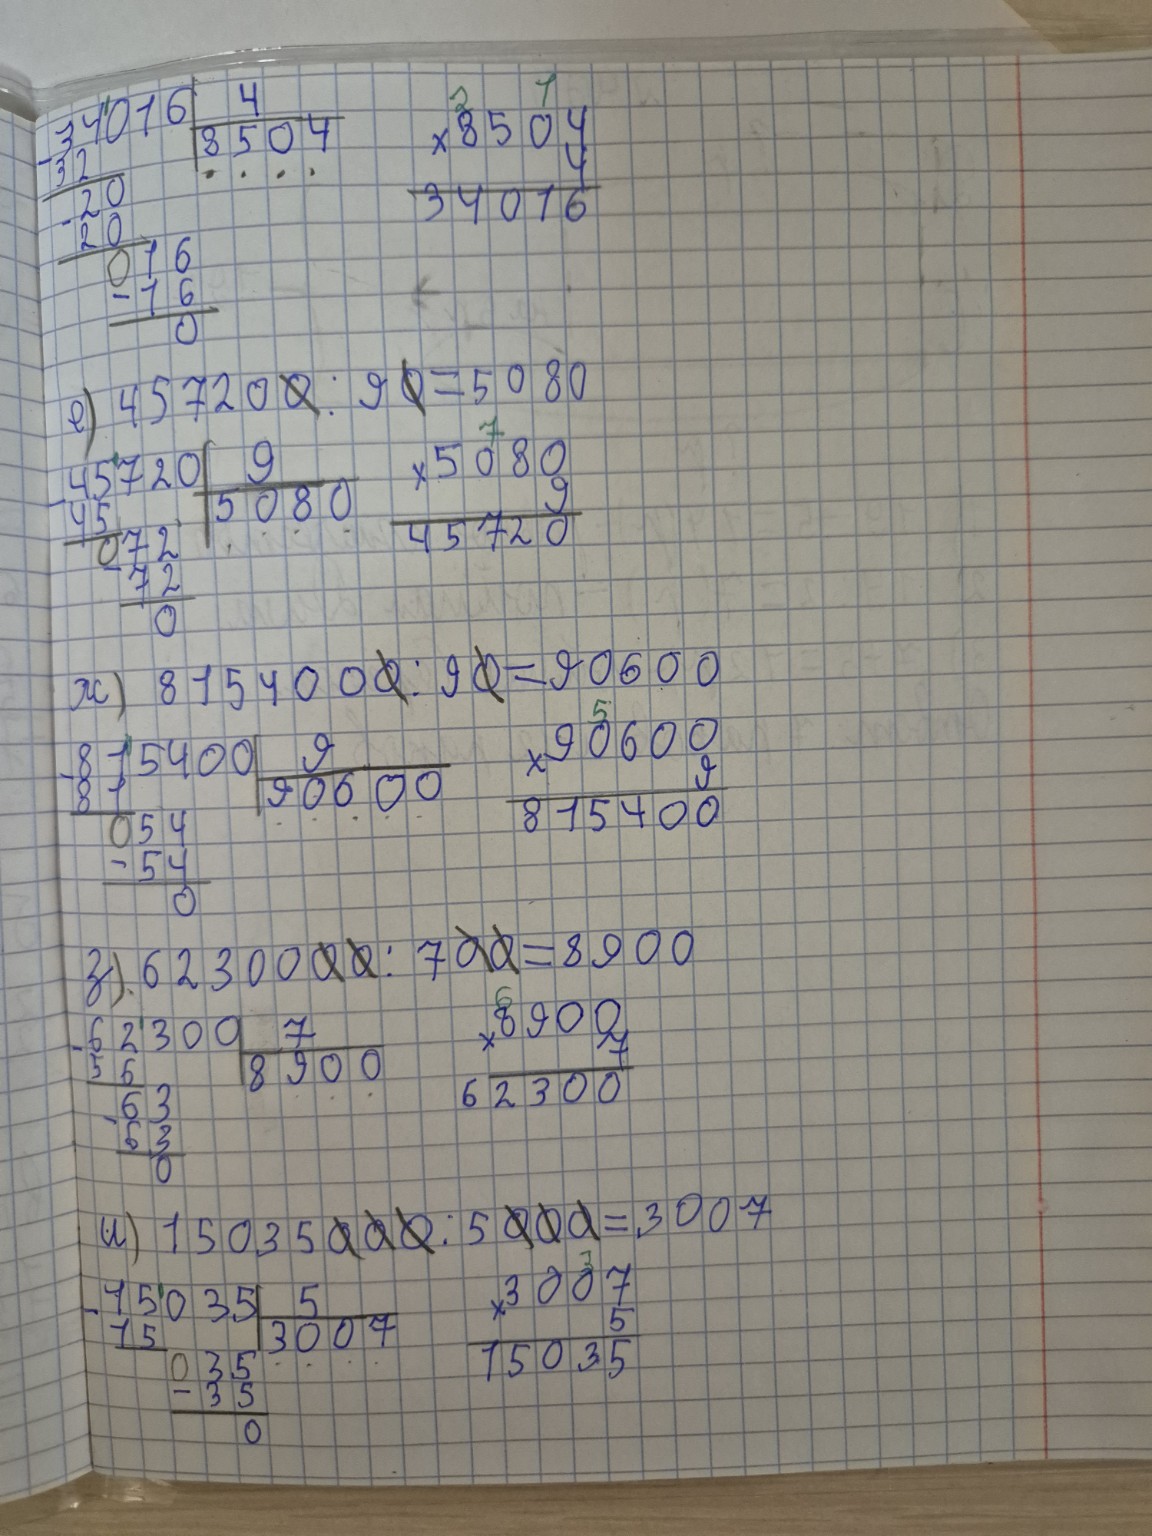 34016 4 2 1
32 8504 ×8504
-20 4
20 34016
016
-16
0
е) 457200 : 90=5080
45720 9 7
45 5080 ×5080
072 9
72 45720
0
ж) 8154000 : 90=90600
-815400 9 5
81 90600 ×90600
054 9
-54 815400
0
з) 6230000 : 700=8900
-62300 7 6
56 8900 ×8900
-63 7
63 62300
0
и) 15035000 : 5000=3007
-15035 5 3
15 3007 ×3007
035 5
-35 15035
0